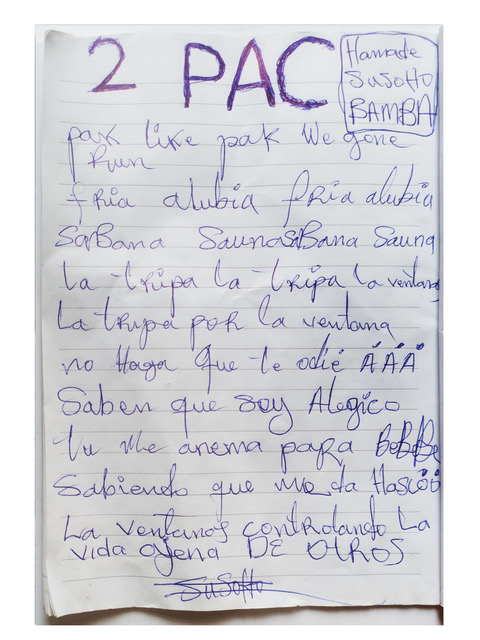 2 PAC
Hamade
SUSOHO
BAMBA
pak like pak We gone
Run
fria alubia fria alubia
SaBana SaunaSaBana Sauna
La tripa La tripa la ventana
La tripa por la ventana
no Haga que te odié ÁÁÁ
Saben que soy Alegico
tu Me anema para BeBeBe
Sabiendo que me da Hascóó
La ventanas controlando La
vida ajena DE OTROS
SUSOHO